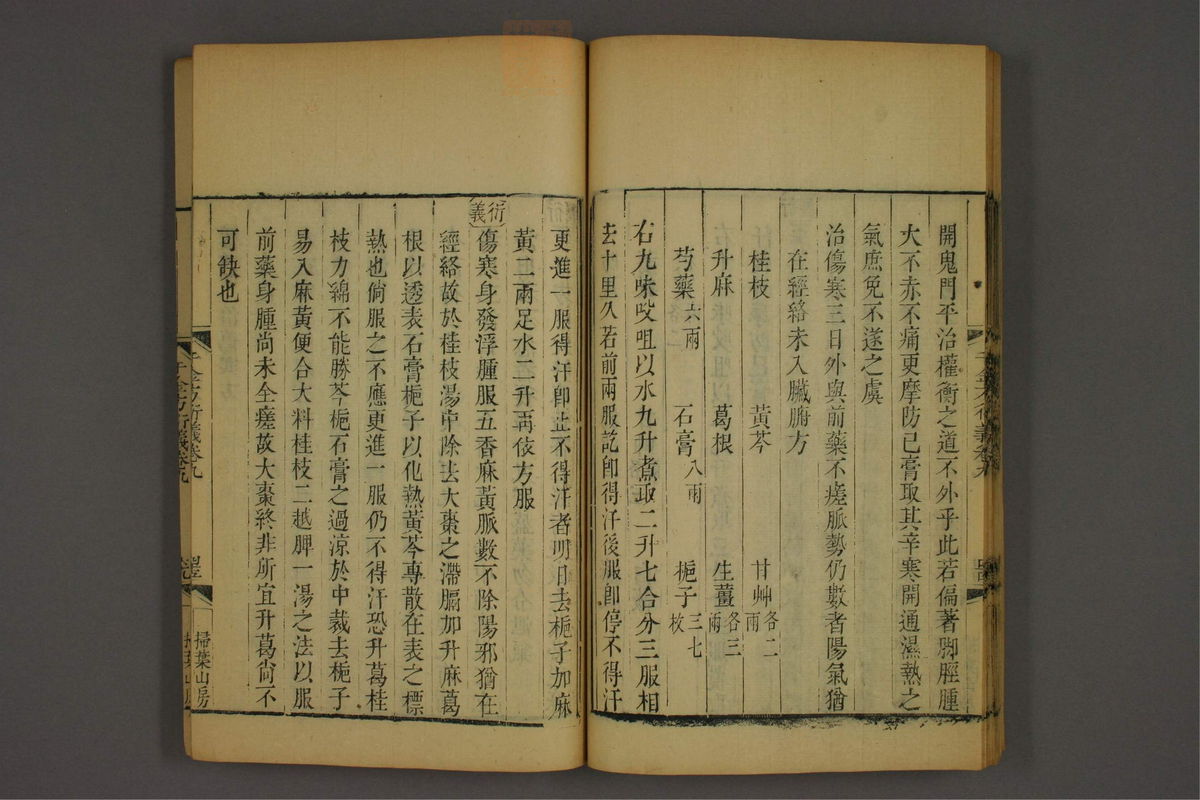 開鬼門平治權衡之道不外乎此若偏著脚脛腫
大不赤不痛更摩防己膏取其辛寒開通濕熱之
氣庶免不遂之虞
治傷寒三日外與前藥不瘥脈勢仍數者陽氣猶
在經絡未入臟腑方
桂枝 黃芩 甘艸各二兩
升麻 葛根 生薑各三兩
芍藥六兩 石膏八兩 梔子三七枚
右九味㕮咀以水九升煮取二升七合分三服相
去十里久若前兩服訖卽得汗後服卽停不得汗
更進一服得汗卽止不得汗者明日去梔子加麻
黃二兩足水二升再依方服
衍義
傷寒身發浮腫服五香麻黃脈數不除陽邪猶在
經絡故於桂枝湯中除去大棗之滯膈加升麻葛
根以透表石膏梔子以化熱黃芩專散在表之標
熱也倘服之不應更進一服仍不得汗恐升葛桂
枝力綿不能勝芩梔石膏之過涼於中裁去梔子
易入麻黃便合大料桂枝二越脾一湯之法以服
前藥身腫尚未全瘥故大棗終非所宜升葛尚不
可缺也
千金方衍義卷九
掃葉山房